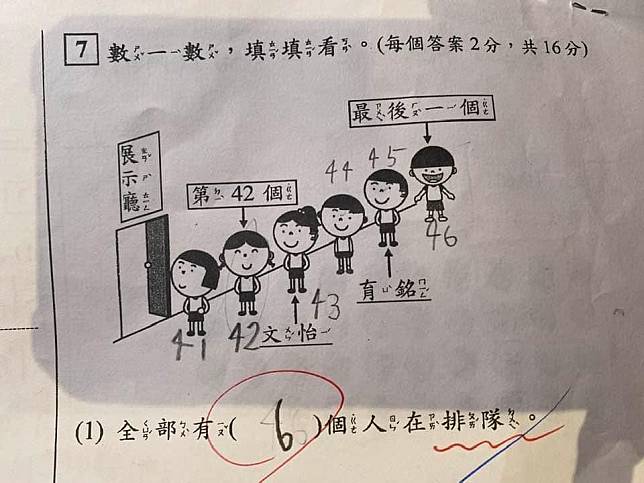 7 數一數，填填看。(每個答案2分，共16分)
最後一個
展示廳
第42個
44 45
46
育銘
43
41 42 文怡
(1) 全部有( 6 )個人在排隊。